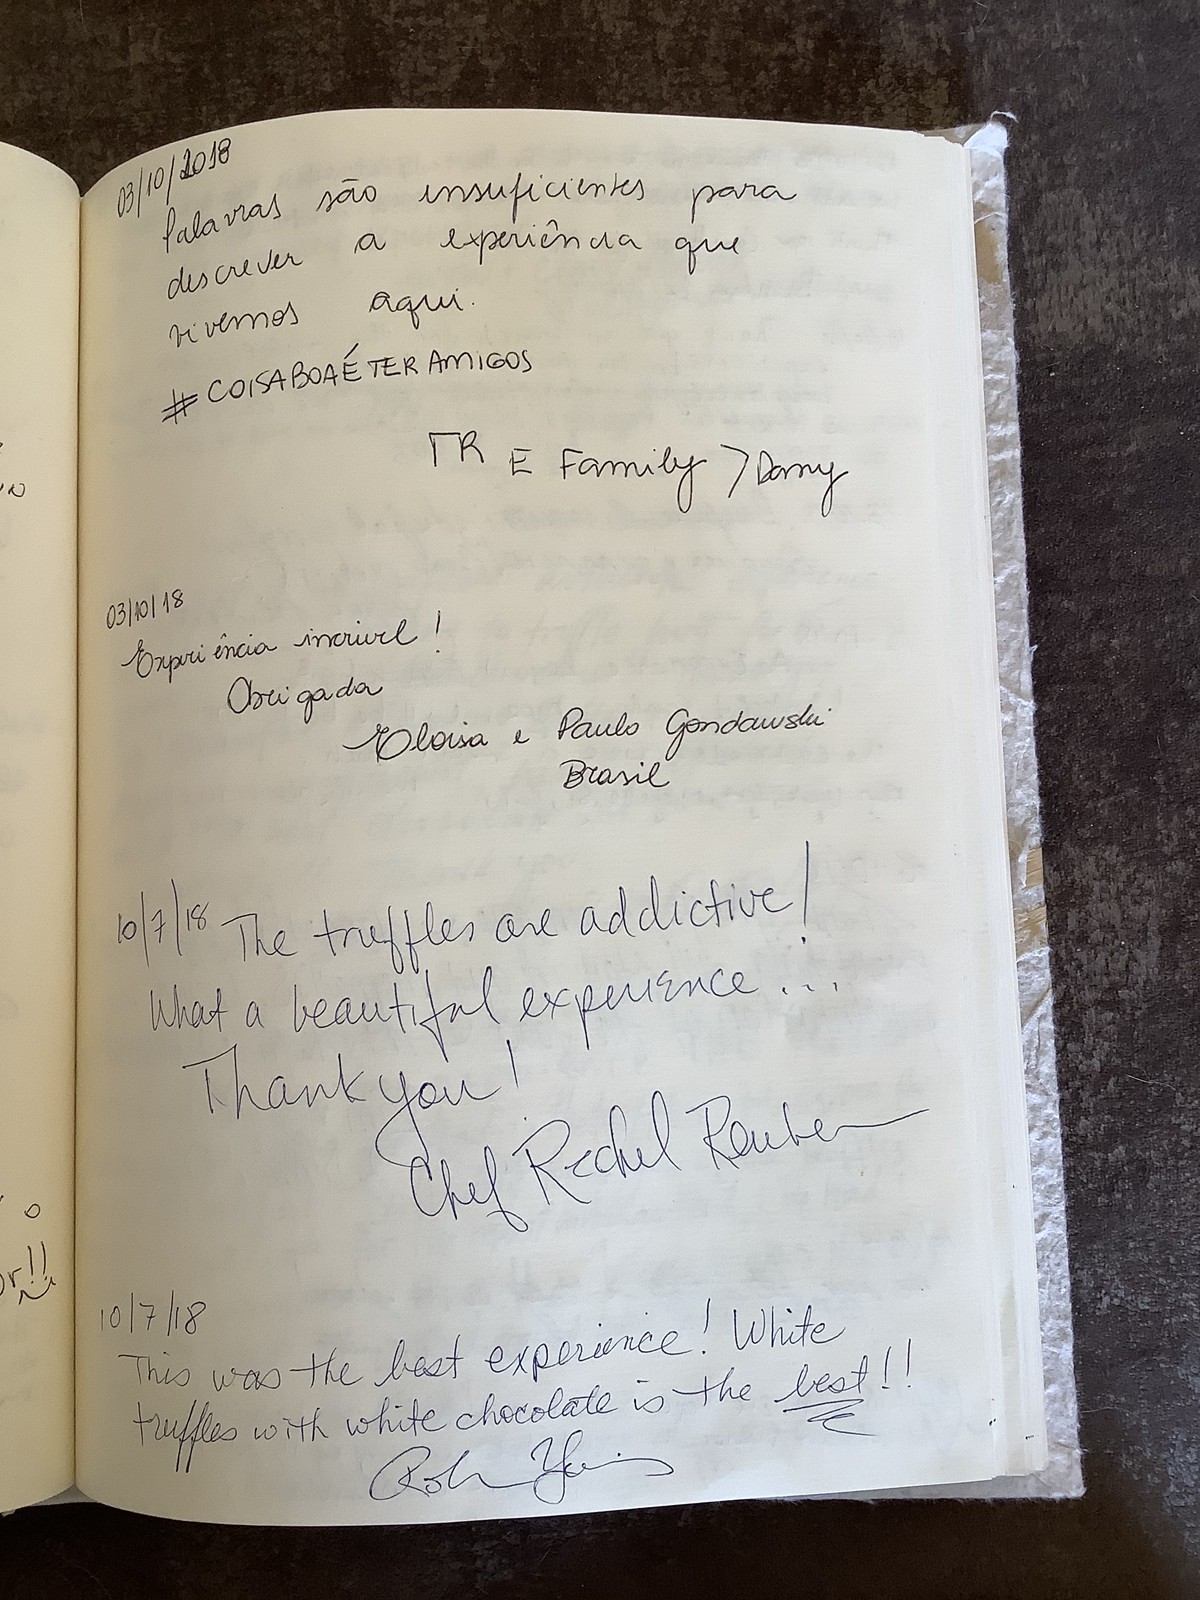 03/10/2018
Palavras são insuficientes para
descrever a experiência que
vivemos aqui.
#COISABOAÉTERAMIGOS
E Family > Danny
03/10/18
Experiência incrivel!
Obrigada
Eloisa e Paulo Gondawski
Brasil
10/7/18 The truffles are addictive!
What a beautiful experience...
Thank you!
Chef Rachel Reuben
10/7/18
This was the best experience! White
truffles with white chocolate is the best!!